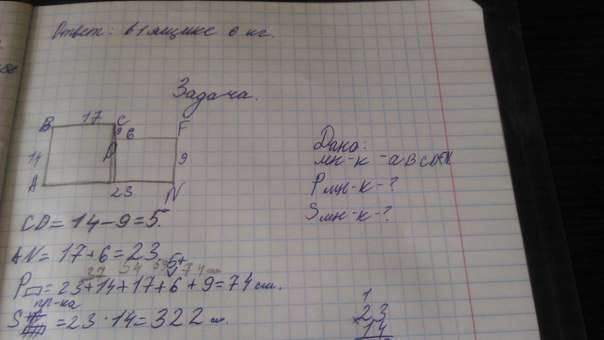 Ответ: в 1 ящике 6 кг.
Задача.
B 17 C
6 F
14 D 9
A 23 N
Дано:
мн-к
Pмн-к-?
Sмн-к-?
CD=14-9=5.
AN=17+6=23.
5+
P=23+14+17+6+9=74 см.
пр-ка
S=23·14=322 см.
1
23
×14